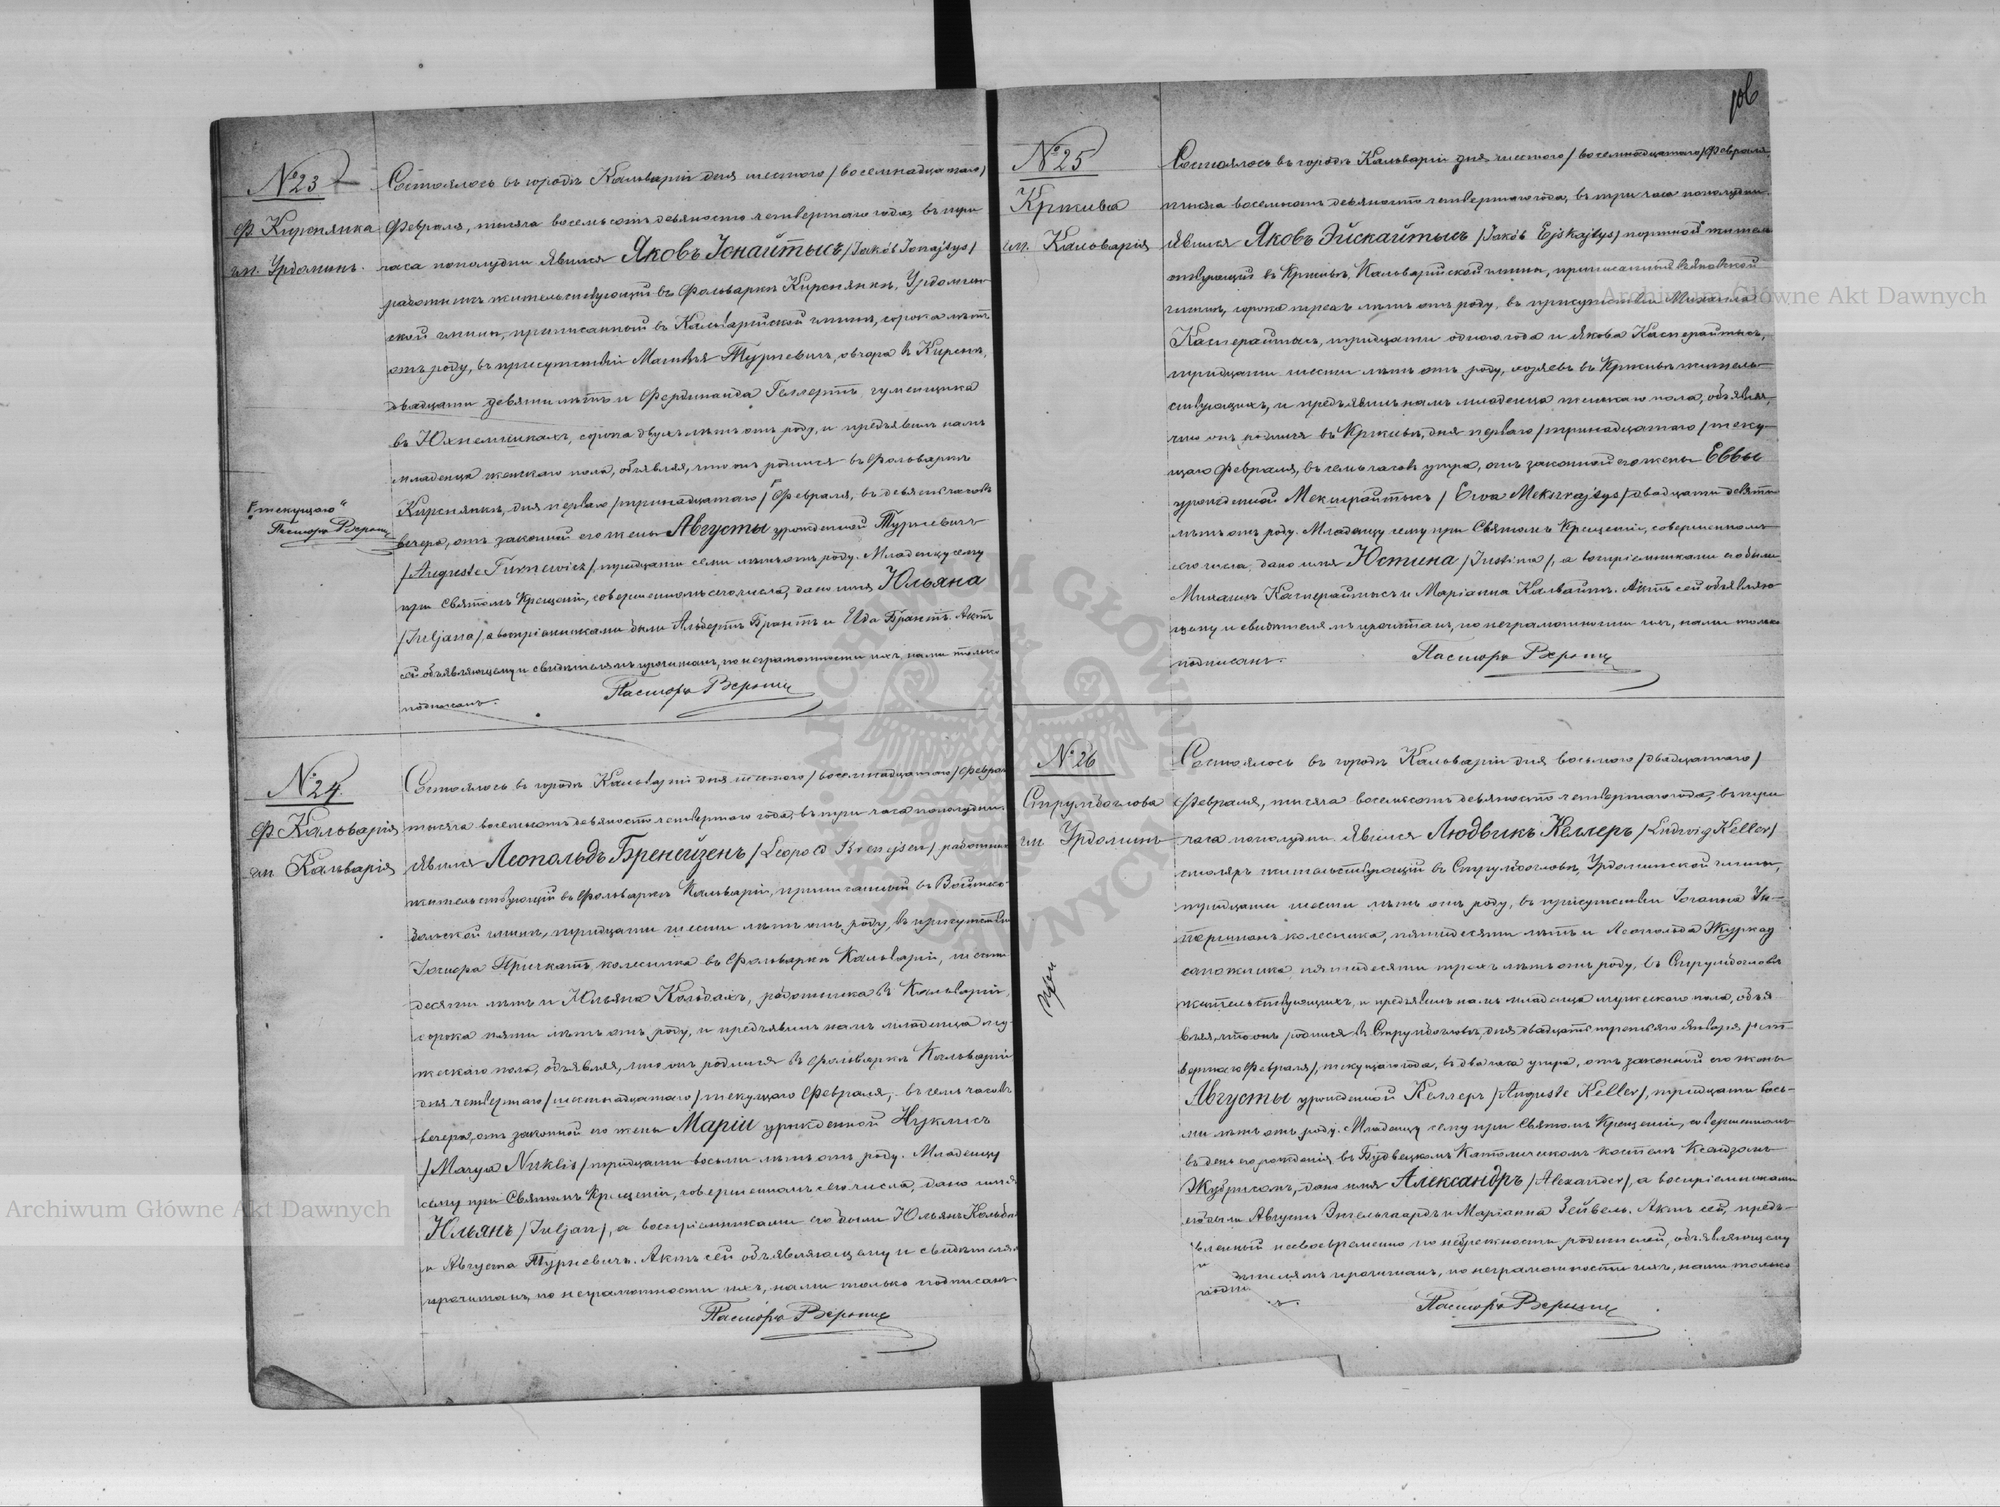 106
№ 23
ф. Кирснянка
гм. Урдоминъ.
„текущаго“
Пасторъ Вероницъ
Состоялось въ городѣ Кальваріи дня шестого /восемнадцатаго/
Февраля, тысяча восемьсотъ девяносто четвертаго года, въ три
часа пополудни. Явился Яковъ Іонайтысъ /Jakób Jonajtys/
работникъ жительствующій въ фольваркѣ Кирснянкѣ, Урдомин-
ской гмины, приписанный въ Кальварійской гминѣ, сорока лѣтъ
отъ роду, въ присутствіи Матвѣя Турневичъ, овчара въ Кирснѣ,
двадцати девяти лѣтъ и Фердинанда Геллертъ гуменщика
въ Юхнелишкахъ, сорока двухъ лѣтъ отъ роду, и предъявилъ намъ
младенца женскаго пола, объявляя, что онъ родился въ фольваркѣ
Кирснянкѣ, дня перваго /тринадцатаго/ Февраля, въ девять часовъ
вечера, отъ законной его жены Августы урожденной Турневичъ
/Auguste Turnewicz/, тридцати семи лѣтъ отъ роду. Младенцу сему
при Святомъ Крещеніи, совершенномъ сего числа, дано имя Юльяна
/Juljana/ а воспріемниками были Альбертъ Брантъ и Ида Брантъ. Актъ
сей объявляющему и свидѣтелямъ прочитанъ, по неграмотности ихъ, нами только
подписанъ.
Пасторъ Вероницъ
№ 24.
ф. Кальварія
гм. Кальварія
Состоялось въ городѣ Кальваріи дня шестого /восемнадцатаго/ Феврал
тысяча восемьсотъ девяносто четвертаго года, въ три часа пополудни.
Явился Леопольдъ Бренейзенъ /Leopold Brenejsen/ работник
жительствующій въ фольваркѣ Кальваріи, приписанный въ Войтко-
больской гминѣ, тридцати шести лѣтъ отъ роду, въ присутствіи
Приткатъ колесника въ фольваркѣ Кальваріи, шести
десяти лѣтъ и Юльяна Кольбахъ, работника въ Кальваріи,
сорока пяти лѣтъ отъ роду, и предъявилъ намъ младенца му-
жескаго пола, объявляя, что онъ родился въ фольваркѣ Кальваріи
дня четвертаго /шестнадцатаго/ текущаго Февраля, въ семь часовъ
вечера, отъ законной его жены Маріи урожденной Нуклисъ
/Marya Nuklis/ тридцати восьми лѣтъ отъ роду. Младенцу
сему при Святомъ Крещеніи, совершенномъ сего числа, дано имя
Юльянъ /Juljan/, а воспріемниками его были Юльянъ Кольба
и Августа Турневичъ. Актъ сей объявляющему и свидѣтелям
прочитанъ, по неграмотности ихъ, нами только подписанъ.
Пасторъ Вероницъ
№ 25
Кржива
гм. Кальварія
Состоялось въ городѣ Кальваріи дня шестого /восемнадцатаго/ Февраля,
тысяча восемьсотъ девяносто четвертаго года, въ три часа пополудни.
Явился Яковъ Эйскайтысъ /Jakób Ejskajtys/ портной житель-
ствующій въ Крживѣ, Кальварійской гмины, приписанный
гминѣ, сорока трехъ лѣтъ отъ роду, въ присутствіи Михаила
Касперайтысъ, тридцати одного года и Якова Касперайтысъ,
тридцати шести лѣтъ отъ роду, хозяевъ въ Крживѣ житель-
ствующихъ, и предъявилъ намъ младенца женскаго пола, объявляя,
что онъ родился въ Крживѣ, дня перваго /тринадцатаго/ теку-
щаго Февраля, въ семь часовъ утра, отъ законной его жены Еввы
урожденной Мекшрайтысъ /Ewa Mekszrajtys/ двадцати девяти
лѣтъ отъ роду. Младенцу сему при Святомъ Крещеніи, совершенномъ
сего числа, дано имя Юстина /Justina/, а воспріемниками его были
Михаилъ Касперайтысъ и Маріанна Кальвайтъ. Актъ сей объявляю-
щему и свидѣтелямъ прочитанъ, по неграмотности ихъ, нами только
подписанъ.
Пасторъ Вероницъ
№ 26
Струмбоглова
гм. Урдоминъ
Состоялось въ городѣ Кальваріи дня восьмого /двадцатаго/
Февраля, тысяча восемьсотъ девяносто четвертаго года, въ три
часа пополудни. Явился Людвикъ Келлеръ /Ludwig Keller/
столяръ жительствующій въ Струмбоглове, Урдоминской гмины,
тридцати шести лѣтъ отъ роду, въ присутствіи Іоганна
колесника, пятидесяти лѣтъ и Леопольда Журкад
сапожника пятидесяти трехъ лѣтъ отъ роду, въ Струмбогловѣ
жительствующихъ, и предъявилъ намъ младенца мужескаго пола, объя-
вляя, что онъ родился въ Струмбогловѣ, дня двадцать третьяго Января /чет-
вертаго Февраля/, текущаго года, въ два часа утра, отъ законной его жены
Августы урожденной Келлеръ /Auguste Keller/, тридцати вось-
ми лѣтъ отъ роду. Младенцу сему при Святомъ Крещеніи, совершенномъ
въ день его рожденія въ Будвецкомъ Католическомъ костелѣ Ксендзомъ
дано имя Александръ /Alexander/, а воспріемниками
его были Августъ Энгельгаардъ и Маріанна Зейбель. Актъ сей, предъ-
вленный несвоевременно по небрежности родителей, объявляющему
и дѣтелямъ прочитанъ, по неграмотности ихъ, нами только
Пасторъ Вероницъ
Archiwum Główne Akt Dawnych
Archiwum Główne Akt Dawnych